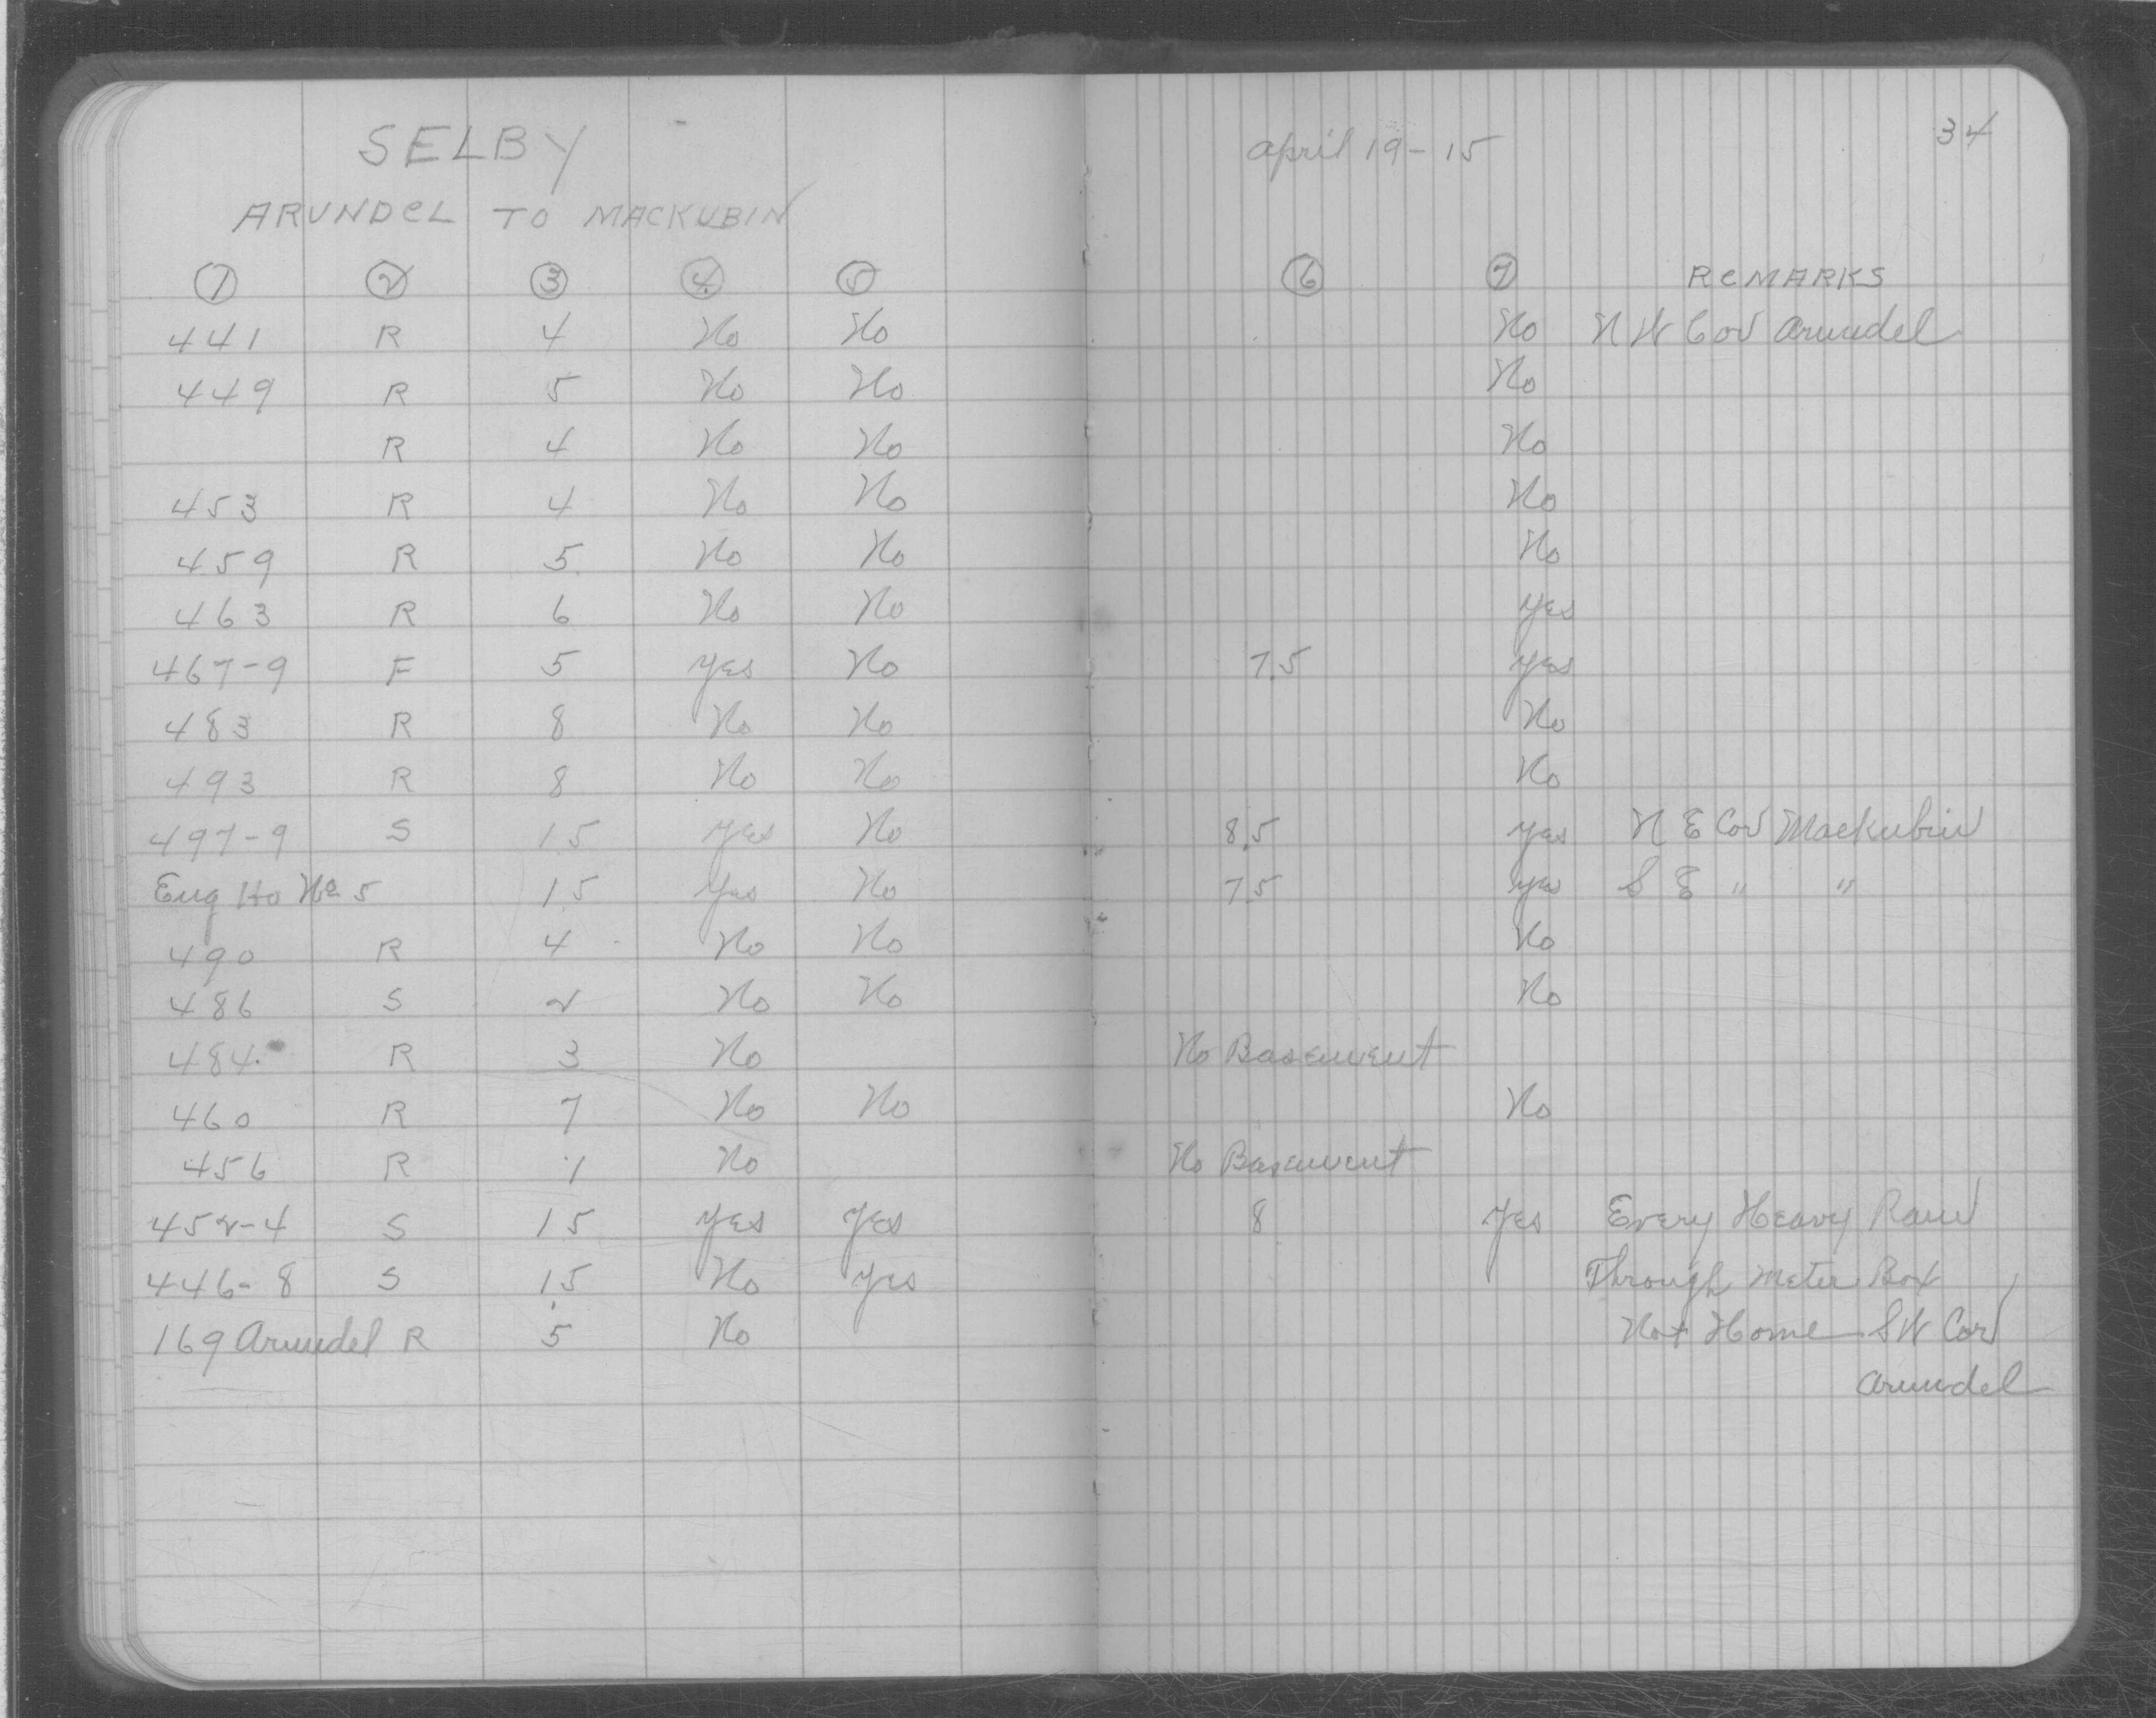 SELBY april 19-15 34
ARUNDEL TO MACKUBIN
1 2 3 4 5 6 7 REMARKS
441 R 4 No No No N W Cor Arundel
449 R 5 No No No
R 4 No No No
453 R 4 No No No
459 R 5 No No No
463 R 6 No No yes
467-9 F 5 yes No 7.5 yes
483 R 8 No No No
493 R 8 No No No
497-9 S 1.5 yes No 8.5 yes N E Cor Mackubin
Eng Ho No 5 1.5 yes No 7.5 yes S E " "
490 R 4 No No No
486 S 2 No No No
484 R 3 No No Basement
460 R 7 No No No
456 R 1 No No Basement
452-4 S 1.5 yes yes 8 yes Every Heavy Rain
446-8 S 1.5 No yes Through Meter Box
169 Arundel R 5 No Not Home S W Cor
Arundel